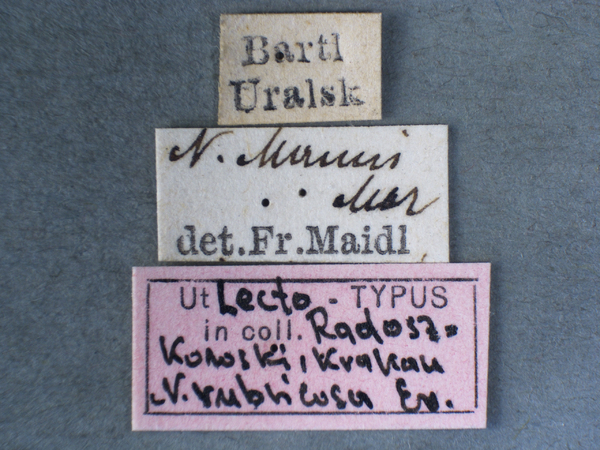 Bartl
Uralsk
N. Mannii
Mor
det. Fr. Maidl
Ut Lecto - TYPUS
in coll. Radosz=
Kowski, Krakau
N. rubricosa Ev.